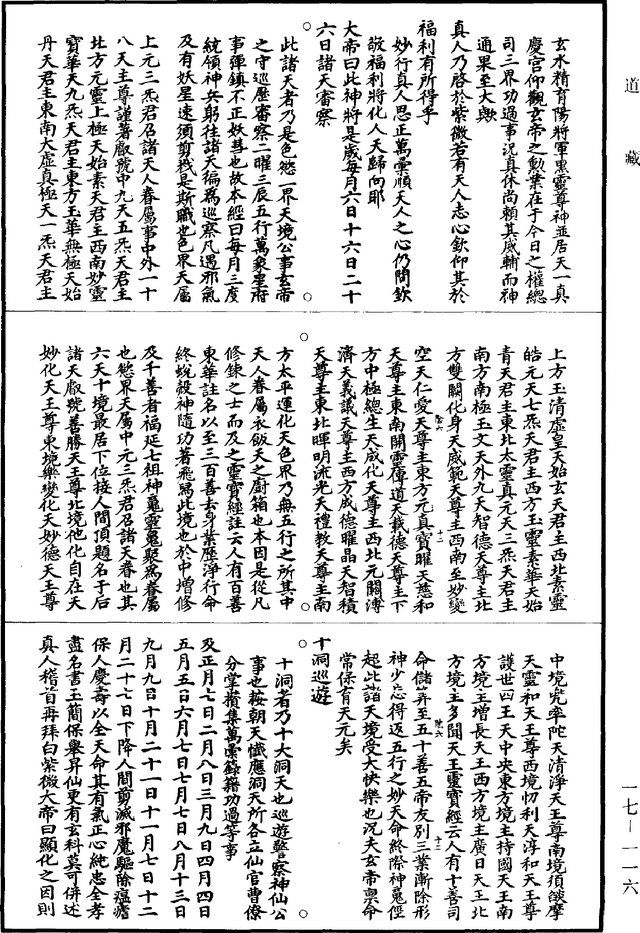 道藏
玄水精育陽將軍黑靈尊神並居天一真
慶宮仰觀玄帝之勳業在于今日之權總
司三界功過事況真休尚賴其威輔而神
通果至大歟
真人乃啓於紫微若有天人志心欽仰其於
福利有所得乎
妙行真人思正萬彙順天人之心仍問欽
敬福利將化人天歸向耶
大帝曰此神將是歲每月六日十六日二十
六日諸天審察
此諸天者乃是色慾二界天境公事玄帝
之守巡歷審察二曜三辰五行萬象星府
事彈鎮不正妖彗也故本經曰每月三度
統領神兵躬往諸天徧為巡察凡遇邪氣
及有妖星速須剪戮是斯職也色界天屬
上元三炁君召諸天人眷屬事中外一十
八天主尊謹著敭號中九天五炁天君主
北方元靈上極天始素天君主西南妙靈
寶華天九炁天君主東方玉華無極天始
丹天君主東南大虛真極天一炁天君主
上方玉清虛皇天始玄天君主西北素靈
皓元天七炁天君主西方玉靈素華天始
青天君主東北太靈真元天三炁天君主
南方南極玉文天外九天智德天尊主北
方雙關化身天威範天尊主西南至妙變
空天仁愛天尊主東方元真寶曜天慈和
天尊主東南開靈廣道天裁德天尊主下
方中極總生天成化天尊主西北元關溥
濟天義議天尊主西方成德曜晶天智積
天尊主東北暉明流光天禮教天尊主南
方太平運化天色界乃無五行之所其中
天人眷屬衣飯天之廚箱也本因是從凡
修鍊之士而及之靈寶經註云人有百善
東華註名以至三百善去身業歷淨行命
終蛻殼神隨功著飛舄此境也於中增修
及千善者福延七祖神鬼靈䰟聚為眷屬
也慾界天屬中元三炁君召諸天眷也其
六天十境最居下位接人間頂題名于后
諸天敭號善勝天王尊北境他化自在天
妙化天王尊東境樂變化天妙德天王尊
中境兜率陀天清淨天王尊南境須燄摩
天靈和天王尊西境忉利天淳和天王尊
護世四王天中央東方境主持國天王南
方境主增長天王西方境主廣目天王北
方境主多聞天王靈寶經云人有十善司
命儲筭至五十善五帝友別三業漸除形
神少忘得返五行之妙天命終除神䰟徑
起此諸天境受大快樂也況夫玄帝禀命
常保育天元矣
十洞巡遊
十洞者乃十大洞天也巡遊警察神仙公
事也按朝天懺應洞天所各立仙官曹僚
分掌嶽集萬彙籙籍功過等事
及正月七日二月八日三月九日四月四日
五月五日六月七日七月七日八月十三日
九月九日十月二十一日十一月七日十二
月二十七日下降人間剪滅邪魔驅除瘟癘
保人慶壽以全天命其有氣正心純忠全孝
盡名書玉簡保舉昇仙更有玄科莫可併述
真人稽首再拜白紫微大帝曰顯化之因則
一七―一一六